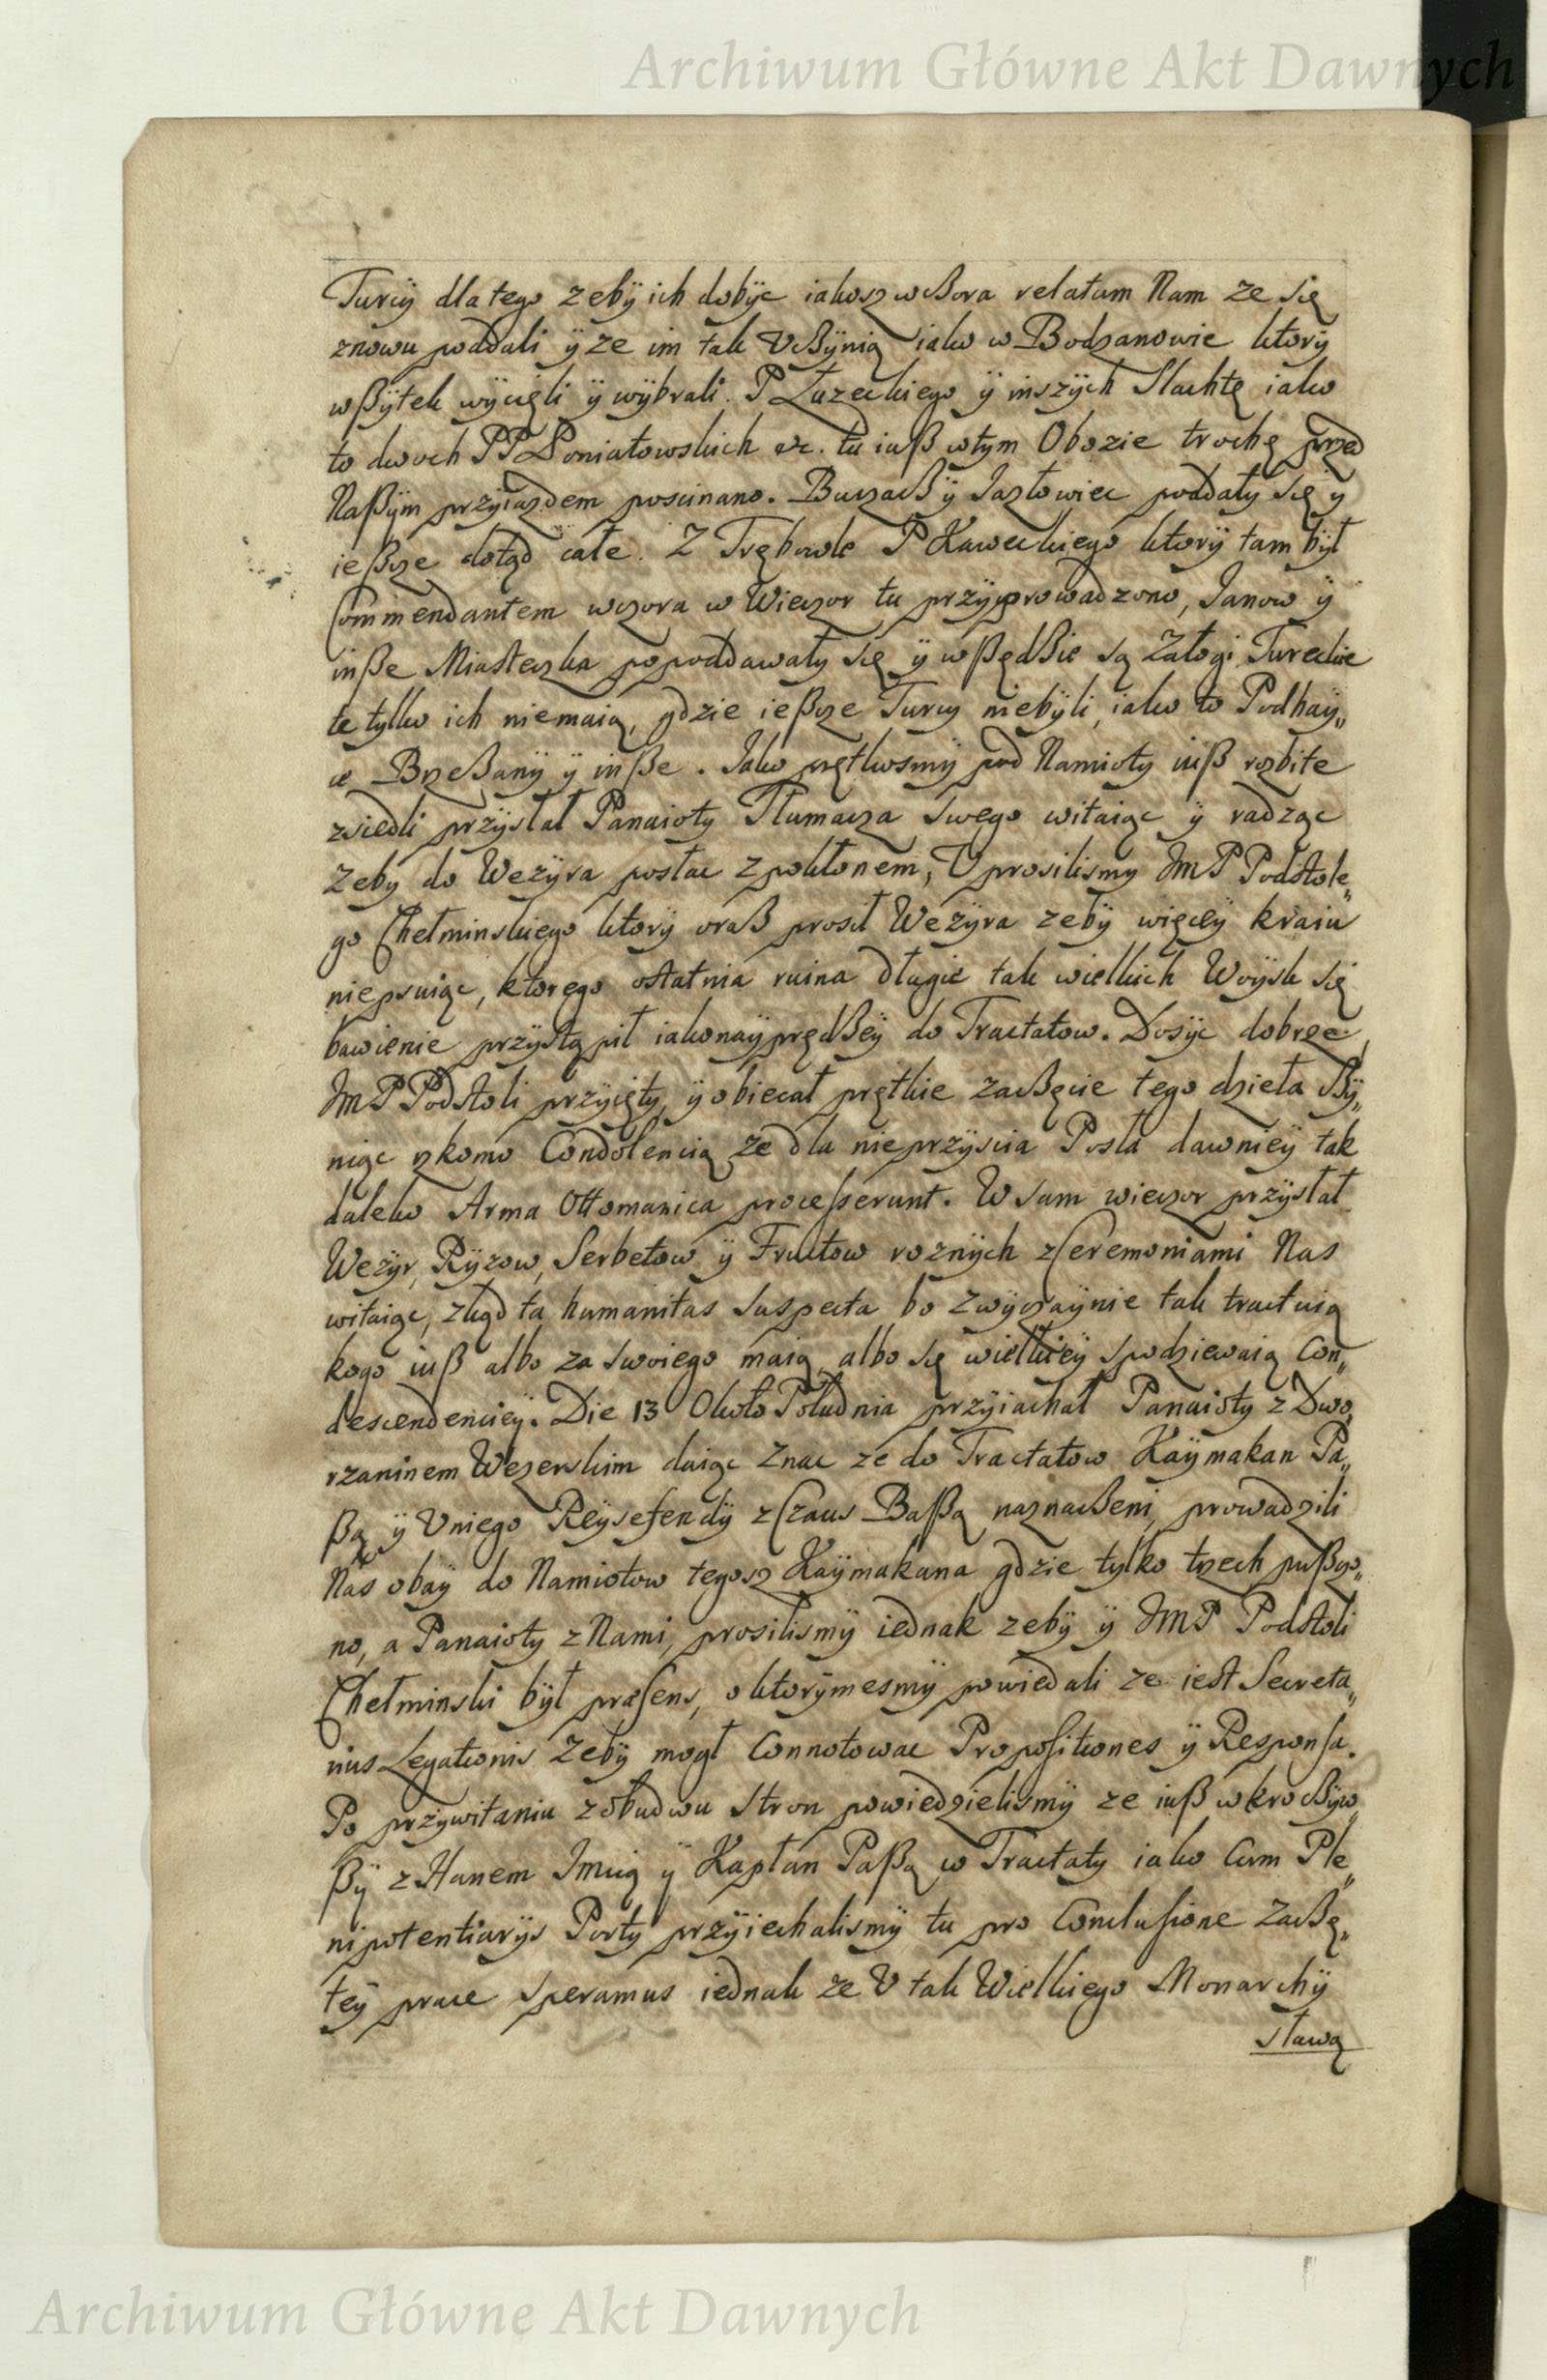 Archiwum Główne Akt Dawnych
Turcÿ dla tego zebÿ ich dobÿc iakosz wcßora relatum Nam ze się
znowu poddali ÿ ze im tak Vcßÿnią iako w Bodzanowie ktorÿ
wßÿtek wÿcięli ÿ wÿbrali. P Łuzeckiego ÿ inszÿch Slachtę iako
to dwoch PP Poniatowskich etc. tu iuß w tym Obozie trochę przed
Naßÿm przÿiazdem poscinano. Buczacß ÿ Jazłowiec poddały się ÿ
ießcze dotąd całe. Z Trębowle P Kaweckiego ktorÿ tam bÿł
Commendantem wczora w Wieczor tu przÿprowadzono, Janow ÿ
inße Miasteczka popoddawały się ÿ wßędßie są Załogi Tureckie
te tylko ich niemaią, gdzie ießcze Turcy niebÿli, iako to Podhaÿ„
ce Brzeßanÿ ÿ inße. Jako prętkosmÿ pod Namioty iuß rozbite
zsiedli przÿsłał Panaioty Tłumacza swego witaiąc ÿ radząc
Zeby do Wezÿra posłac z pokłonem, Vprosilismy JmP Podstole„
go Chełminskiego ktorÿ oraß prosił Wezÿra zebÿ więcÿ kraiu
niepsuiąc, ktorego ostatnia ruina długie tak wielkich Woÿsk się
bawienie przÿstąpił iakonaÿprędßeÿ do Tractatow. Dosÿc dobrze
JmP Podstoli przÿięty, ÿ obiecał prętkie zacßęcie tego dzieła cßÿ„
niąc rzkomo Condolencią że dla nieprzÿscia Posła dawnieÿ tak
daleko Arma Ottomanica processerunt. W sam wieczor przÿsłał
Wezÿr, Rÿzow, Serbetow ÿ Fructow roznÿch z Ceremoniami Nas
witaiąc, zkąd ta humanitas suspecta bo zwÿczaÿnie tak tractuią
kogo iuß albo za swoiego maią, albo się wielkieÿ spodziewaią Con„
descendencieÿ. Die 13 Około Południa przÿiachał Panaioty z Dwo„
rzaninem Wezerskim daiąc znac ze do Tractatow Kaÿmakan Pa„
ßa ÿ Vniego Reÿsefendÿ z Czaus Baßą naznacßeni, prowadzili
Nas obaÿ do Namiotow tegosz Kaÿmakana gdzie tylko trzech pußczo„
no, a Panaioty z Nami, prosilismÿ iednak zebÿ ÿ JMP Podstoli
Chełminski bÿł præsens, o ktorÿmesmÿ powiedali ze iest Secreta„
rius Legationis Zebÿ mogł Connotowac Propositiones ÿ Responsa.
Po przÿwitaniu z obudwu stron powiedzielismÿ ze iuß wkrocßÿw„
ßÿ z Hanem Jmcią ÿ Kapłan Paßą w Tractaty iako Cum Ple„
nipotentiarÿs Porty przÿiechalismÿ tu pro Conclusione zacßę„
teÿ prace speramus iednak ze V tak Wielkiego Monarchÿ
sławą
Archiwum Główne Akt Dawnych